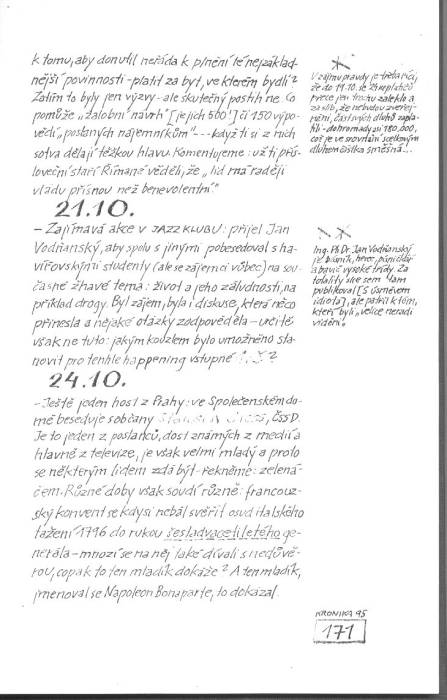 k tomu, aby donutil neřáda k plnění té nejzáklad-
nější povinnosti - platit za byt, ve kterém bydlí?
Zatím to byly jen výzvy - ale skutečný postih ne. Co
pomůže „žalobní návrh" [je jich 500] či 150 výpo-
vědí „poslaných nájemníkům" --- když ti si z nich
sotva dělají těžkou hlavu. Komentujeme: už ti přís-
loveční staří Římané věděli, že „lid má raději
vládu přísnou než benevolentní."
21.10.
- Zajímavá akce v JAZZ KLUBU: přijel Jan
Vodňanský, aby spolu s jinými pobesedoval s ha-
vířovskými studenty (ale se zájemci vůbec) na sou-
časné žhavé téma: život a jeho záludnosti, na
příklad drogy. Byl zájem, byla i diskuse, která něco
přinesla a nějaké otázky zodpověděla - určitě
však ne tuto: jakým kouzlem bylo umožněno sta-
novit pro tenhle happening vstupné
24.10.
- Ještě jeden host z Prahy: ve Společenském do-
mě beseduje s občany ČSSD.
Je to jeden z poslanců, dost známých z medií a
hlavně z televize, je však velmi mladý a proto
se některým lidem zdá být - řekněme: zelená-
čem. Různé doby však soudí různě: francouz-
ský konvent se kdysi nebál svěřit osud italského
tažení 1796 do rukou šestadvacetiletého ge-
nerála - mnozí se na něj také dívali s nedůvě-
rou, copak to ten mladík dokáže? A ten mladík,
jmenoval se Napoleon Bonaparte, to dokázal.
V zájmu pravdy je třeba říci,
že do 19.10. se 24 neplatičů
přece jen trochu zaleklo a
za slib, že nebudou zveřej-
něni, část svých dluhů zapla-
tili - dohromady asi 180.000,
což je ve srovnání s celkovým
dluhem částka směšná...
Ing. PhDr. Jan Vodňanský
je básník, herec, písničkář
a bavič vysoké třídy. Za
totality sice sem tam
publikoval [S úsměvem
idiota], ale patřil k těm,
kteří byli „velice neradi
viděni".
KRONIKA 95
171